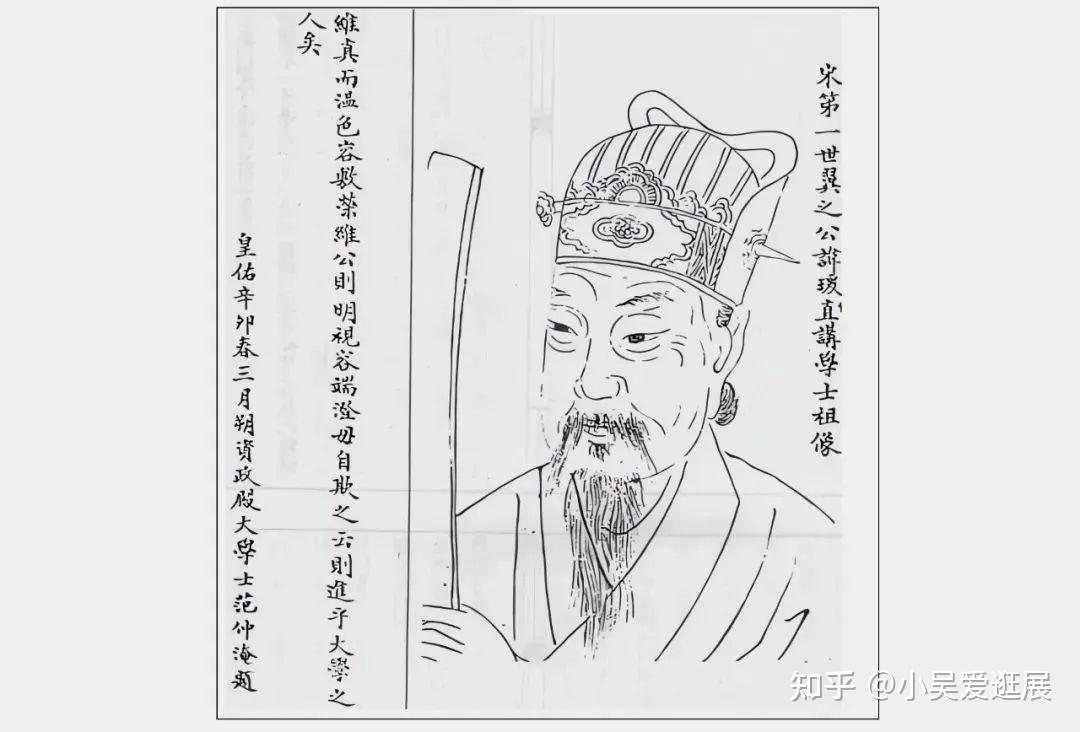 宋第一世巽之公諱瑗直講學士祖像
維真而溫色容敷荣維公則明視容端澄毋自欺之云則進乎大學之
人矣
皇佑辛卯春三月朔資政殿大學士范仲淹題
知乎 @小吴爱逛展